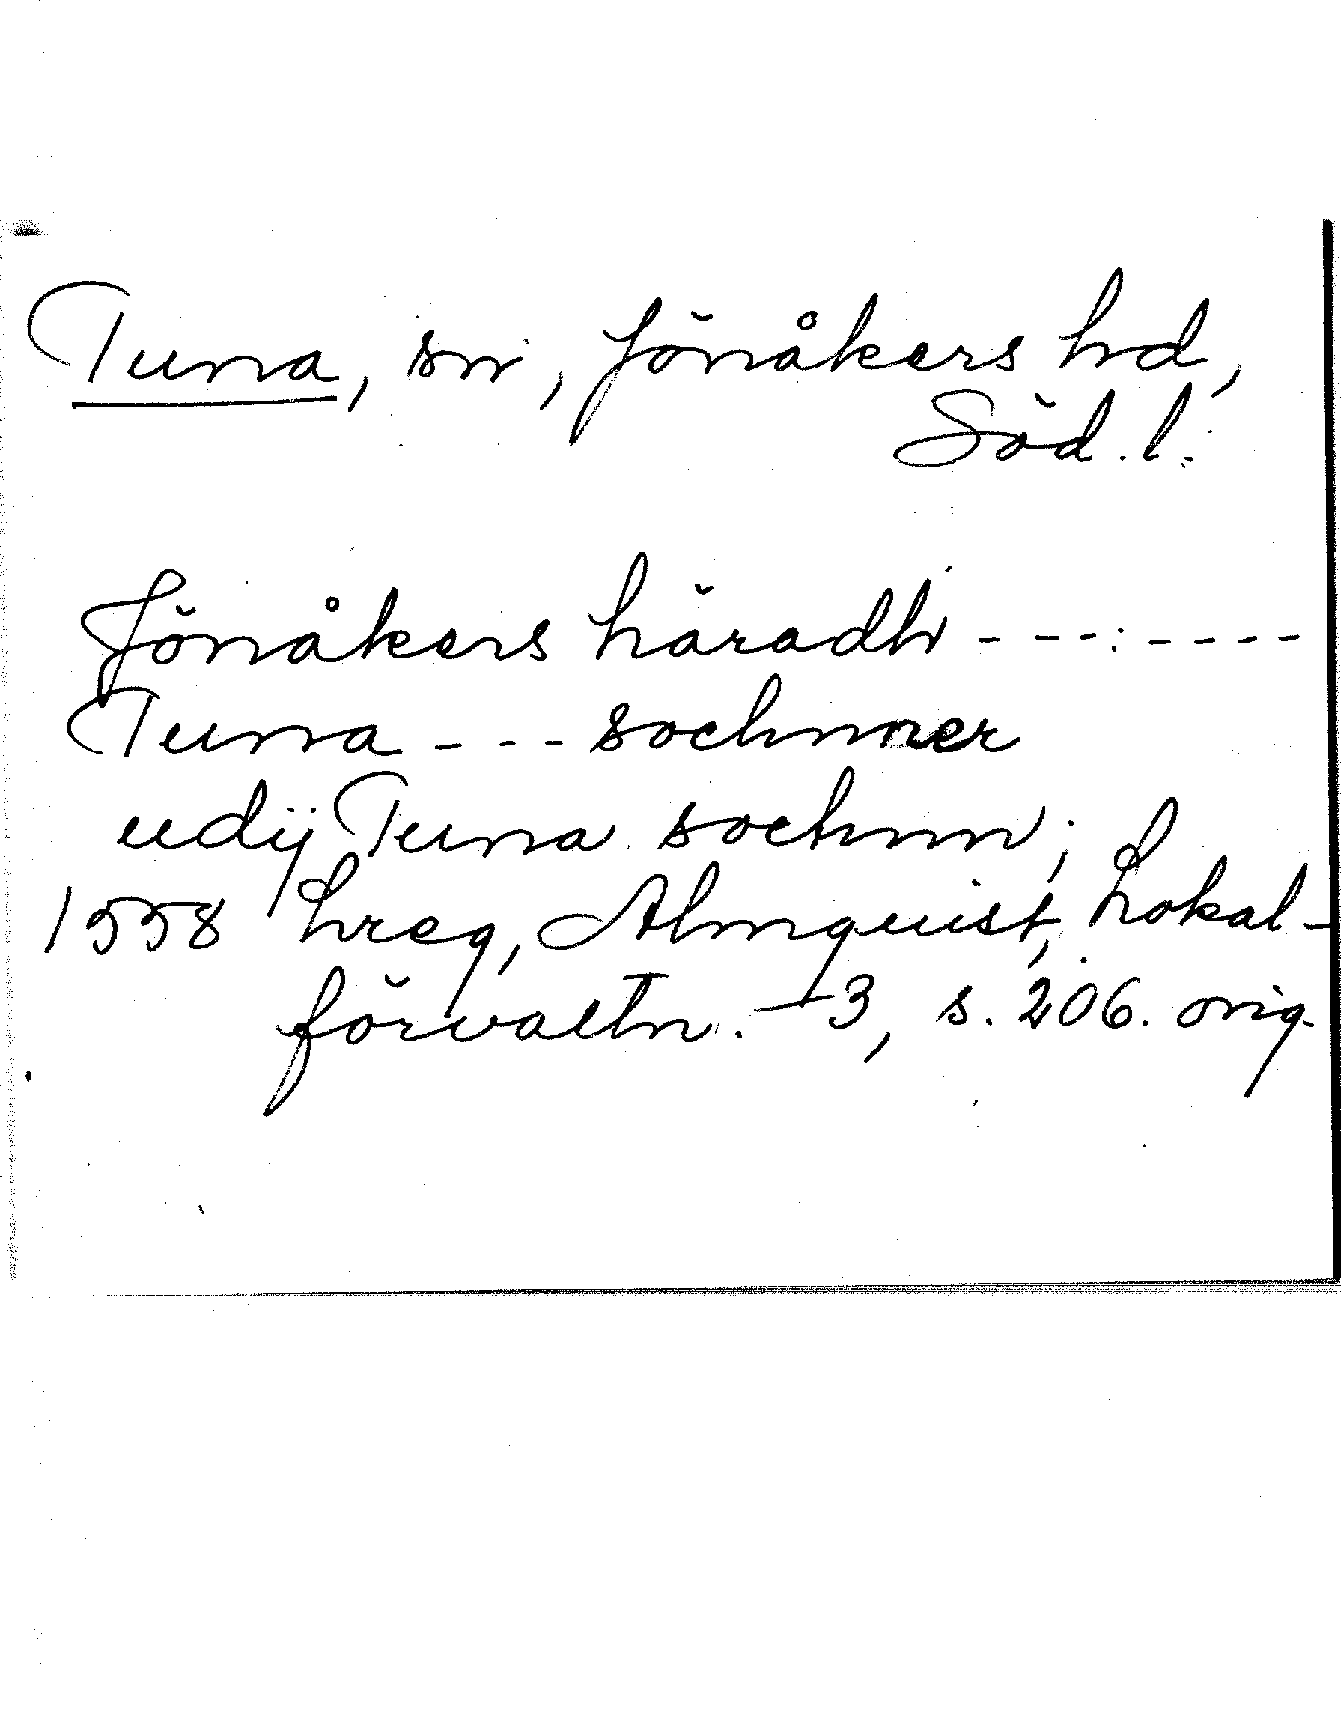 Tuna, sn, Jönåkers hd,
Söd. l.
Jönåkers häradh - - - : - - - -
Tuna - - - sochnner
udij Tuna sochnn;
1558 hreg, Almquist, Lokal-
förvaltn. 3, s. 206. orig.